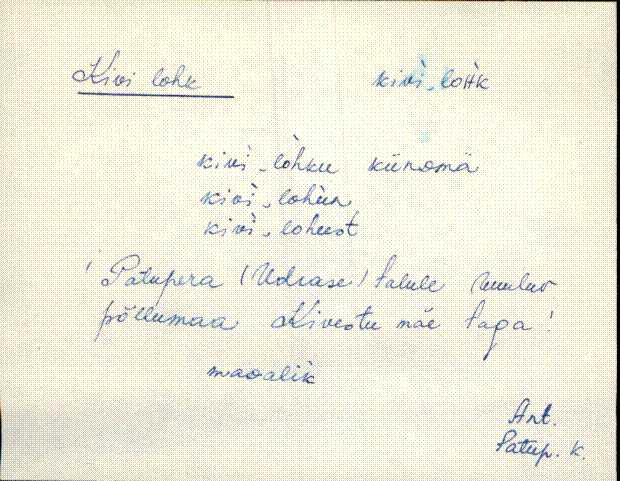 Kivi lohk kivì̬-loHk
kivì̬-lohku künᴅmä
kivì̬-lohun
kivì̬-lohust
' Patupera (Udrase) talule kuuluv
põllumaa Kivestu mäe taga '
maᴅalik
Ant.
Patup. k.